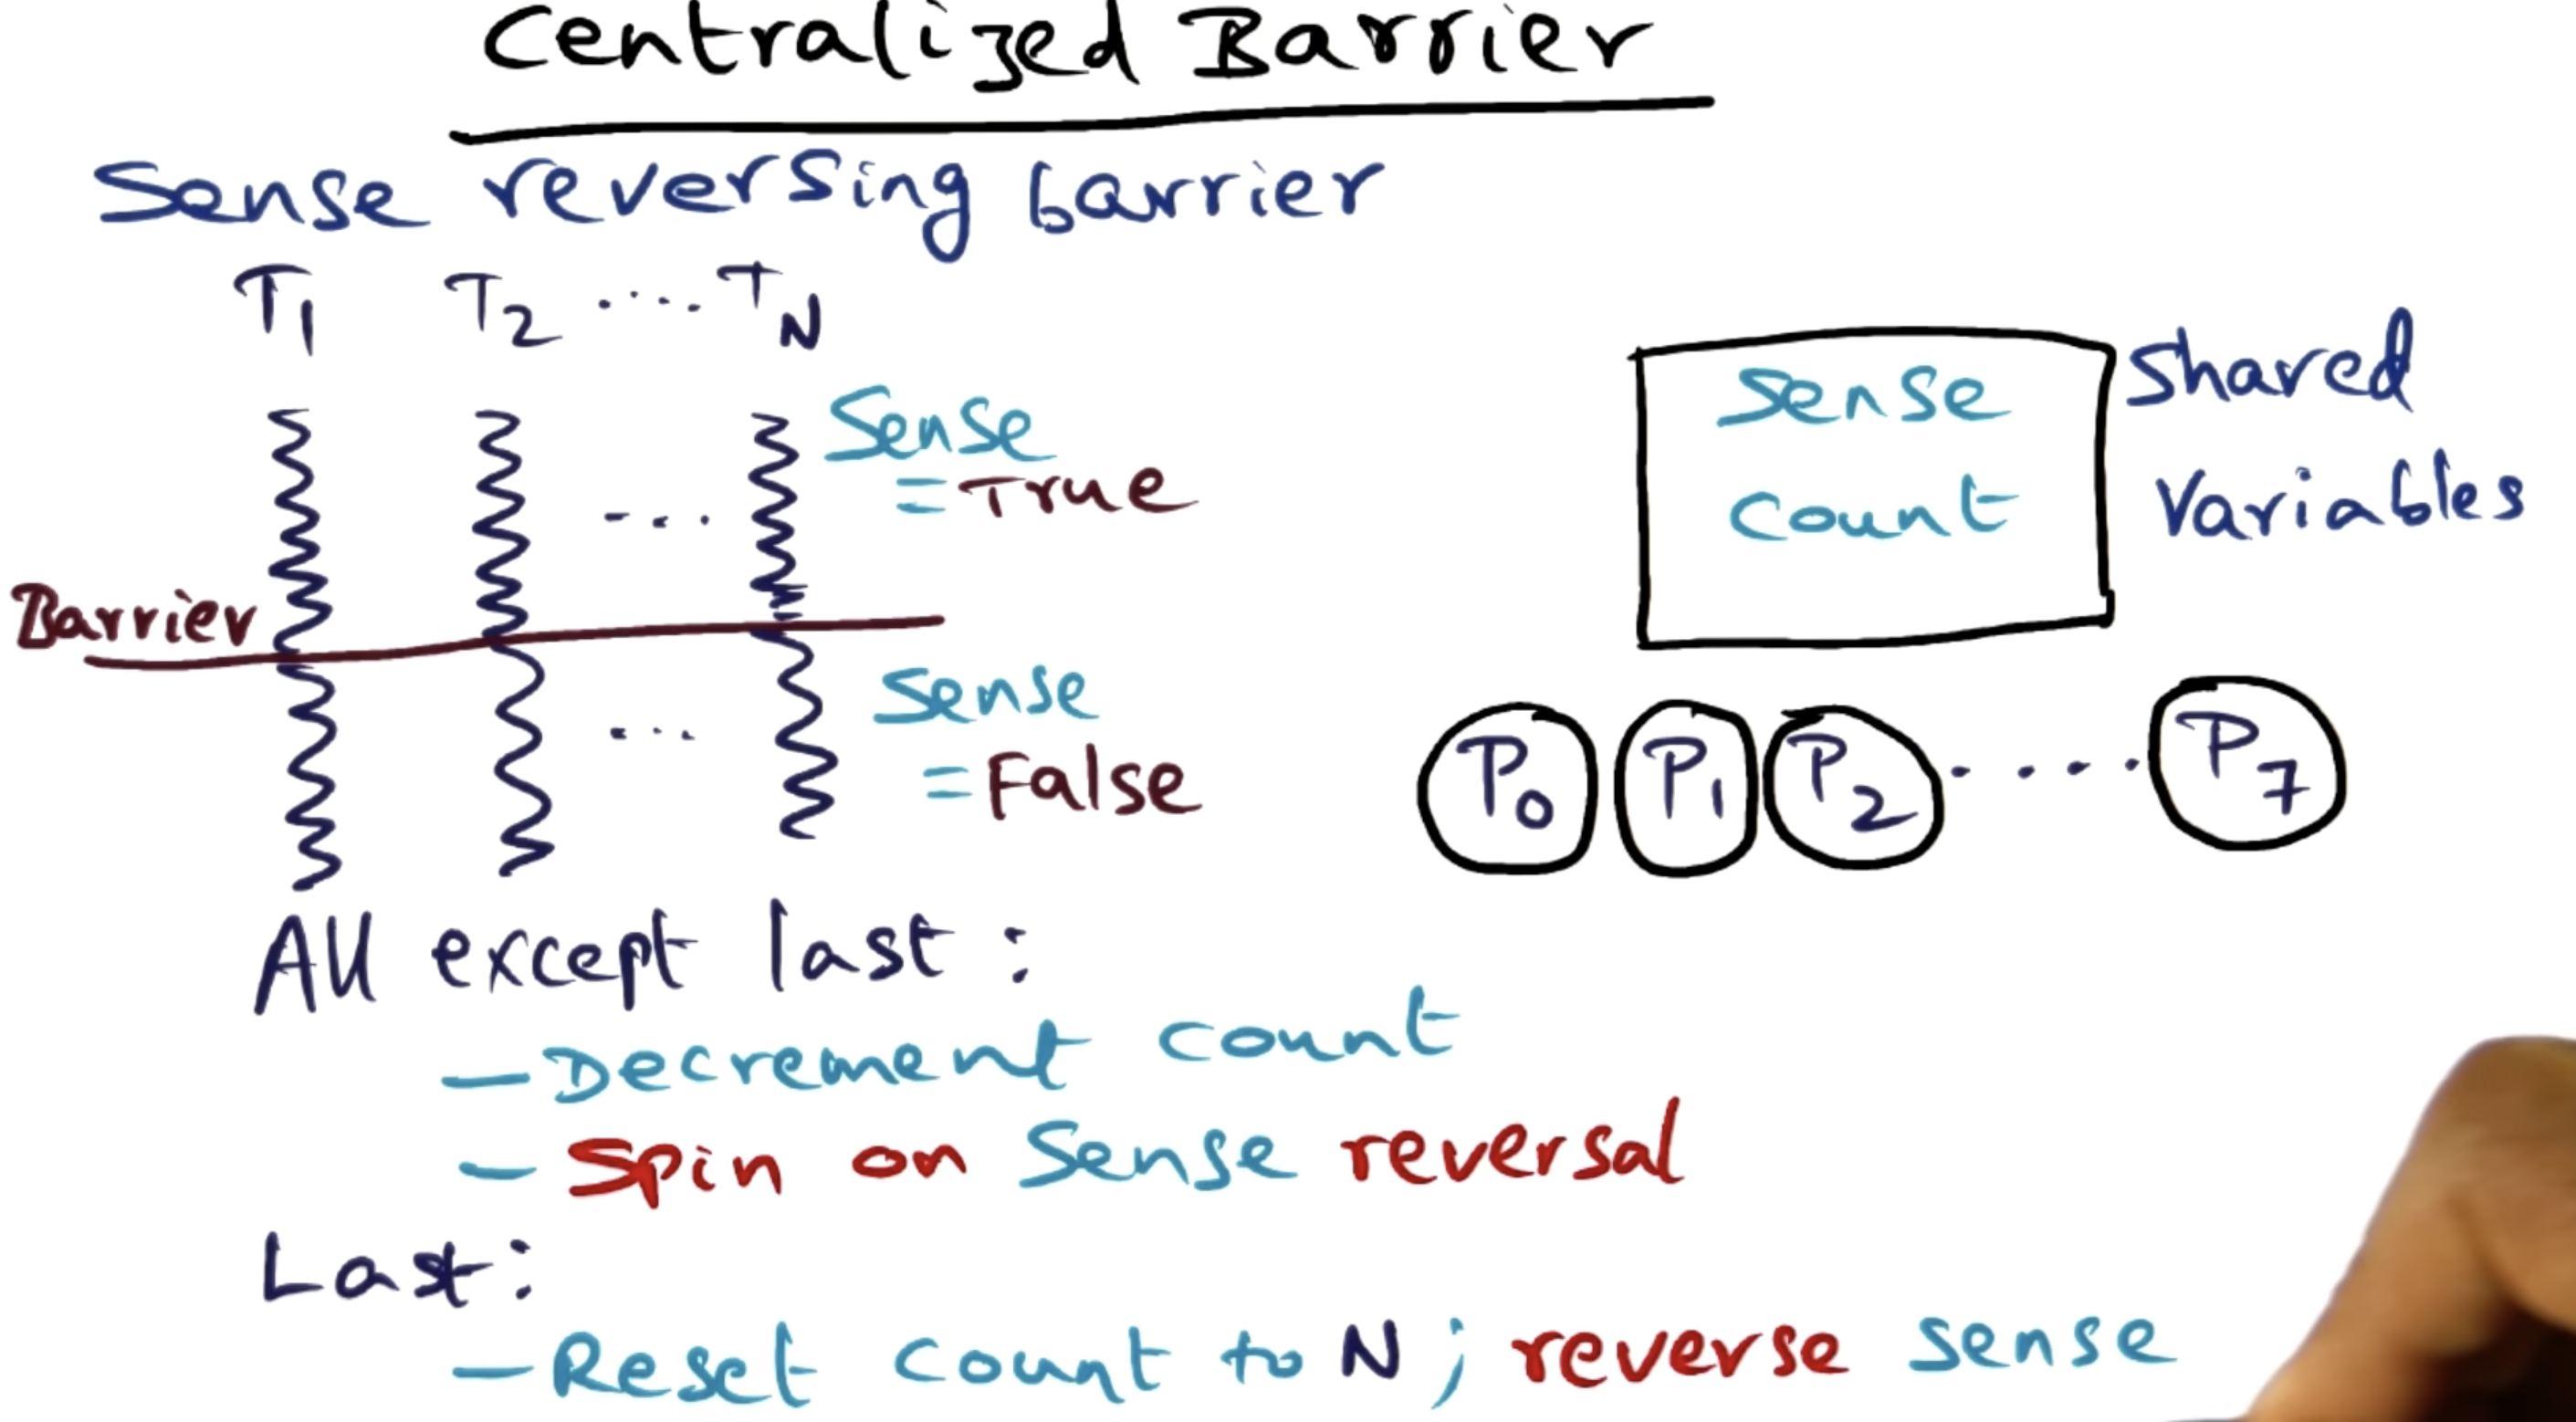 Centralized Barrier
Sense reversing barrier
T1 T2 .... TN
Sense
= True
Barrier
Sense
= False
Sense
Count
Shared
Variables
P0 P1 P2 .... P7
All except last:
- Decrement count
- Spin on Sense reversal
Last:
- Reset count to N; reverse sense